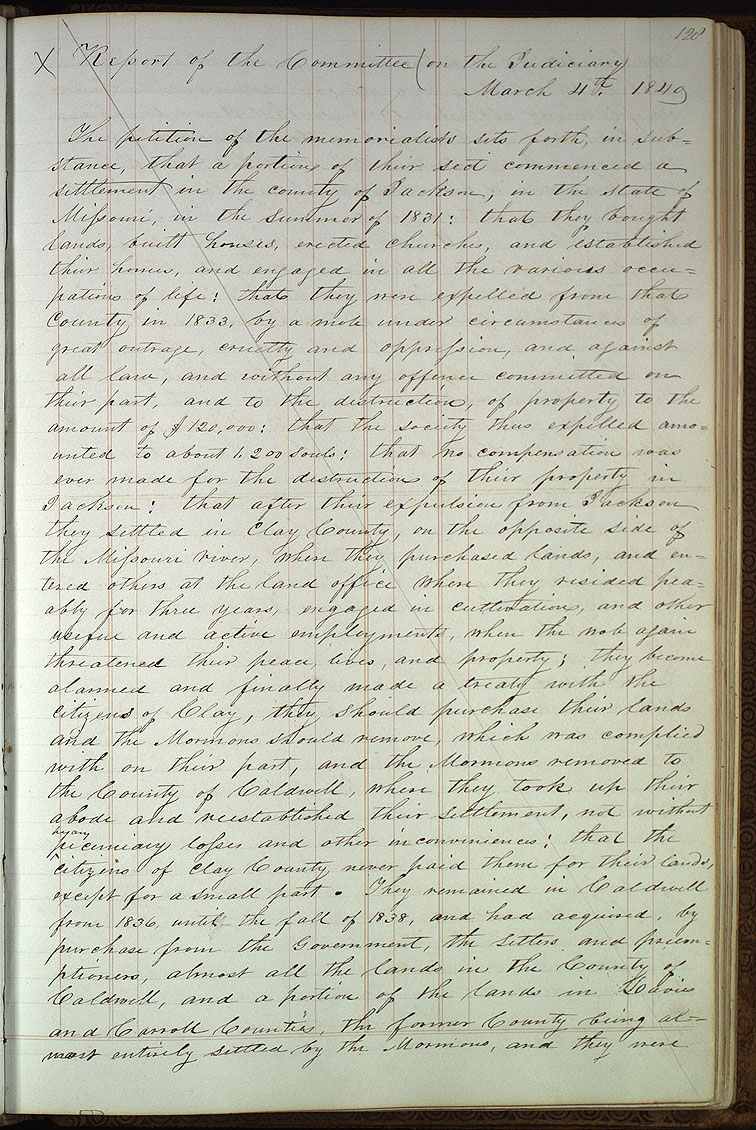 128
X Report of the Committee (on the Judiciary)
March 4th. 1840
The petition of the memorialists sets forth, in sub=
stance, that a portion of their sect commenced a
settlement in the county of Jackson, in the state of
Missouri, in the summer of 1831: that they bought
lands, built houses, erected churches, and established
their homes, and engaged in all the various occu=
pations of life: that they were expelled from that
County in 1833, by a mob under circumstances of
great outrage, cruelty and oppression, and against
all law, and without any offence committed on
their part, and to the distruction, of property to the
amount of $120,000: that the society thus expelled amo=
unted to about 1,200 souls: that no compensation was
ever made for the distruction of their property in
Jackson: that after their expulsion from Jackson
they settled in Clay County, on the opposite side of
the Missouri river, where they purchased lands, and en=
tered others at the land office where they resided pea=
ably for three years, engaged in cultivation, and other
useful and active employments, when the mob again
threatened their peace, lives, and property; they become
alarmed and finally made a treaty with the
citizens of Clay, they should purchase their lands
and the Mormons should remove, which was complied
with on their part, and the Mormons removed to
the County of Caldwell, where they took up their
abode and reestablished their settlement, not without
heavy
pecuniary losses and other inconveniences: that the
citizens of Clay County never paid them for their lands,
except for a small part. They remained in Caldwell
from 1836, until the fall of 1838, and had acquired, by
purchase from the Government, the settlers and preem=
ptioners, almost all the lands in the County of
Caldwell, and a portion of the lands in Davies
and Carroll Counties, the former County being al=
most entirely settled by the Mormons, and they were